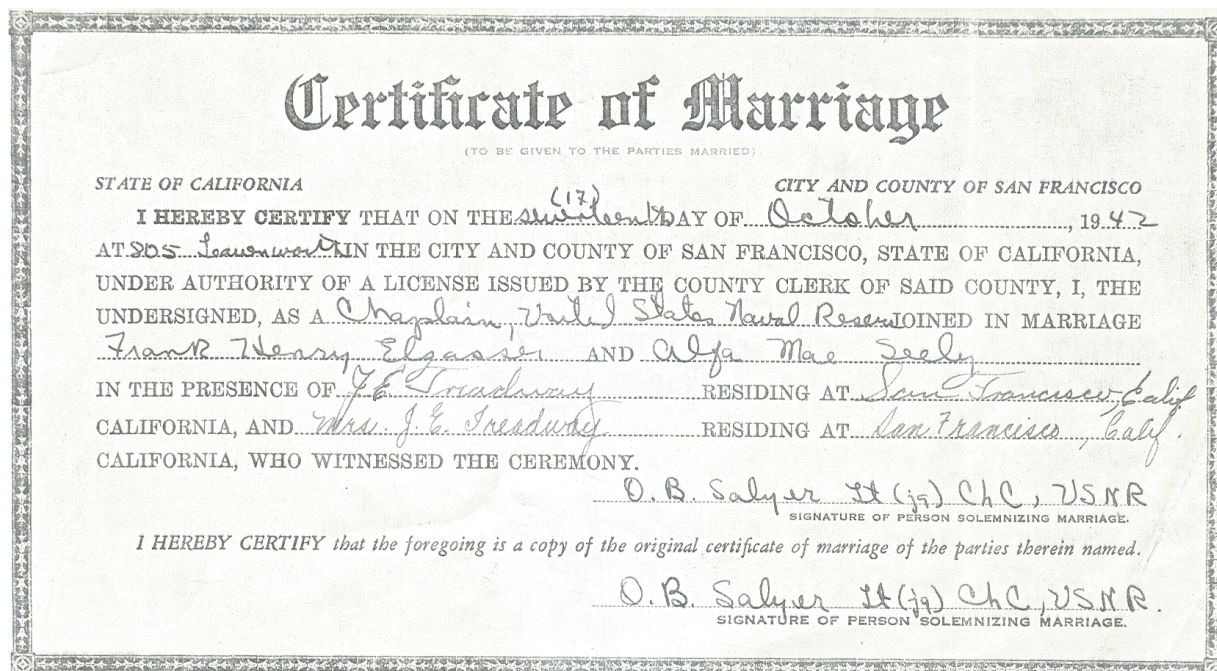 Certificate of Marriage
(TO BE GIVEN TO THE PARTIES MARRIED)
STATE OF CALIFORNIA CITY AND COUNTY OF SAN FRANCISCO
(17)
I HEREBY CERTIFY THAT ON THE seventeenth DAY OF October, 1942
AT 805 Leavenworth IN THE CITY AND COUNTY OF SAN FRANCISCO, STATE OF CALIFORNIA,
UNDER AUTHORITY OF A LICENSE ISSUED BY THE COUNTY CLERK OF SAID COUNTY, I, THE
UNDERSIGNED, AS A Chaplain, United States Naval Reserve JOINED IN MARRIAGE
Frank Henry Elgasser AND Alfa Mae Seely
IN THE PRESENCE OF J E Treadway RESIDING AT San Francisco, Calif
CALIFORNIA, AND Mrs. J. E. Treadway RESIDING AT San Francisco, Calif.
CALIFORNIA, WHO WITNESSED THE CEREMONY.
O. B. Salyer Lt (jg) ChC, USNR
SIGNATURE OF PERSON SOLEMNIZING MARRIAGE.
I HEREBY CERTIFY that the foregoing is a copy of the original certificate of marriage of the parties therein named.
O. B. Salyer Lt (jg) ChC, USNR.
SIGNATURE OF PERSON SOLEMNIZING MARRIAGE.